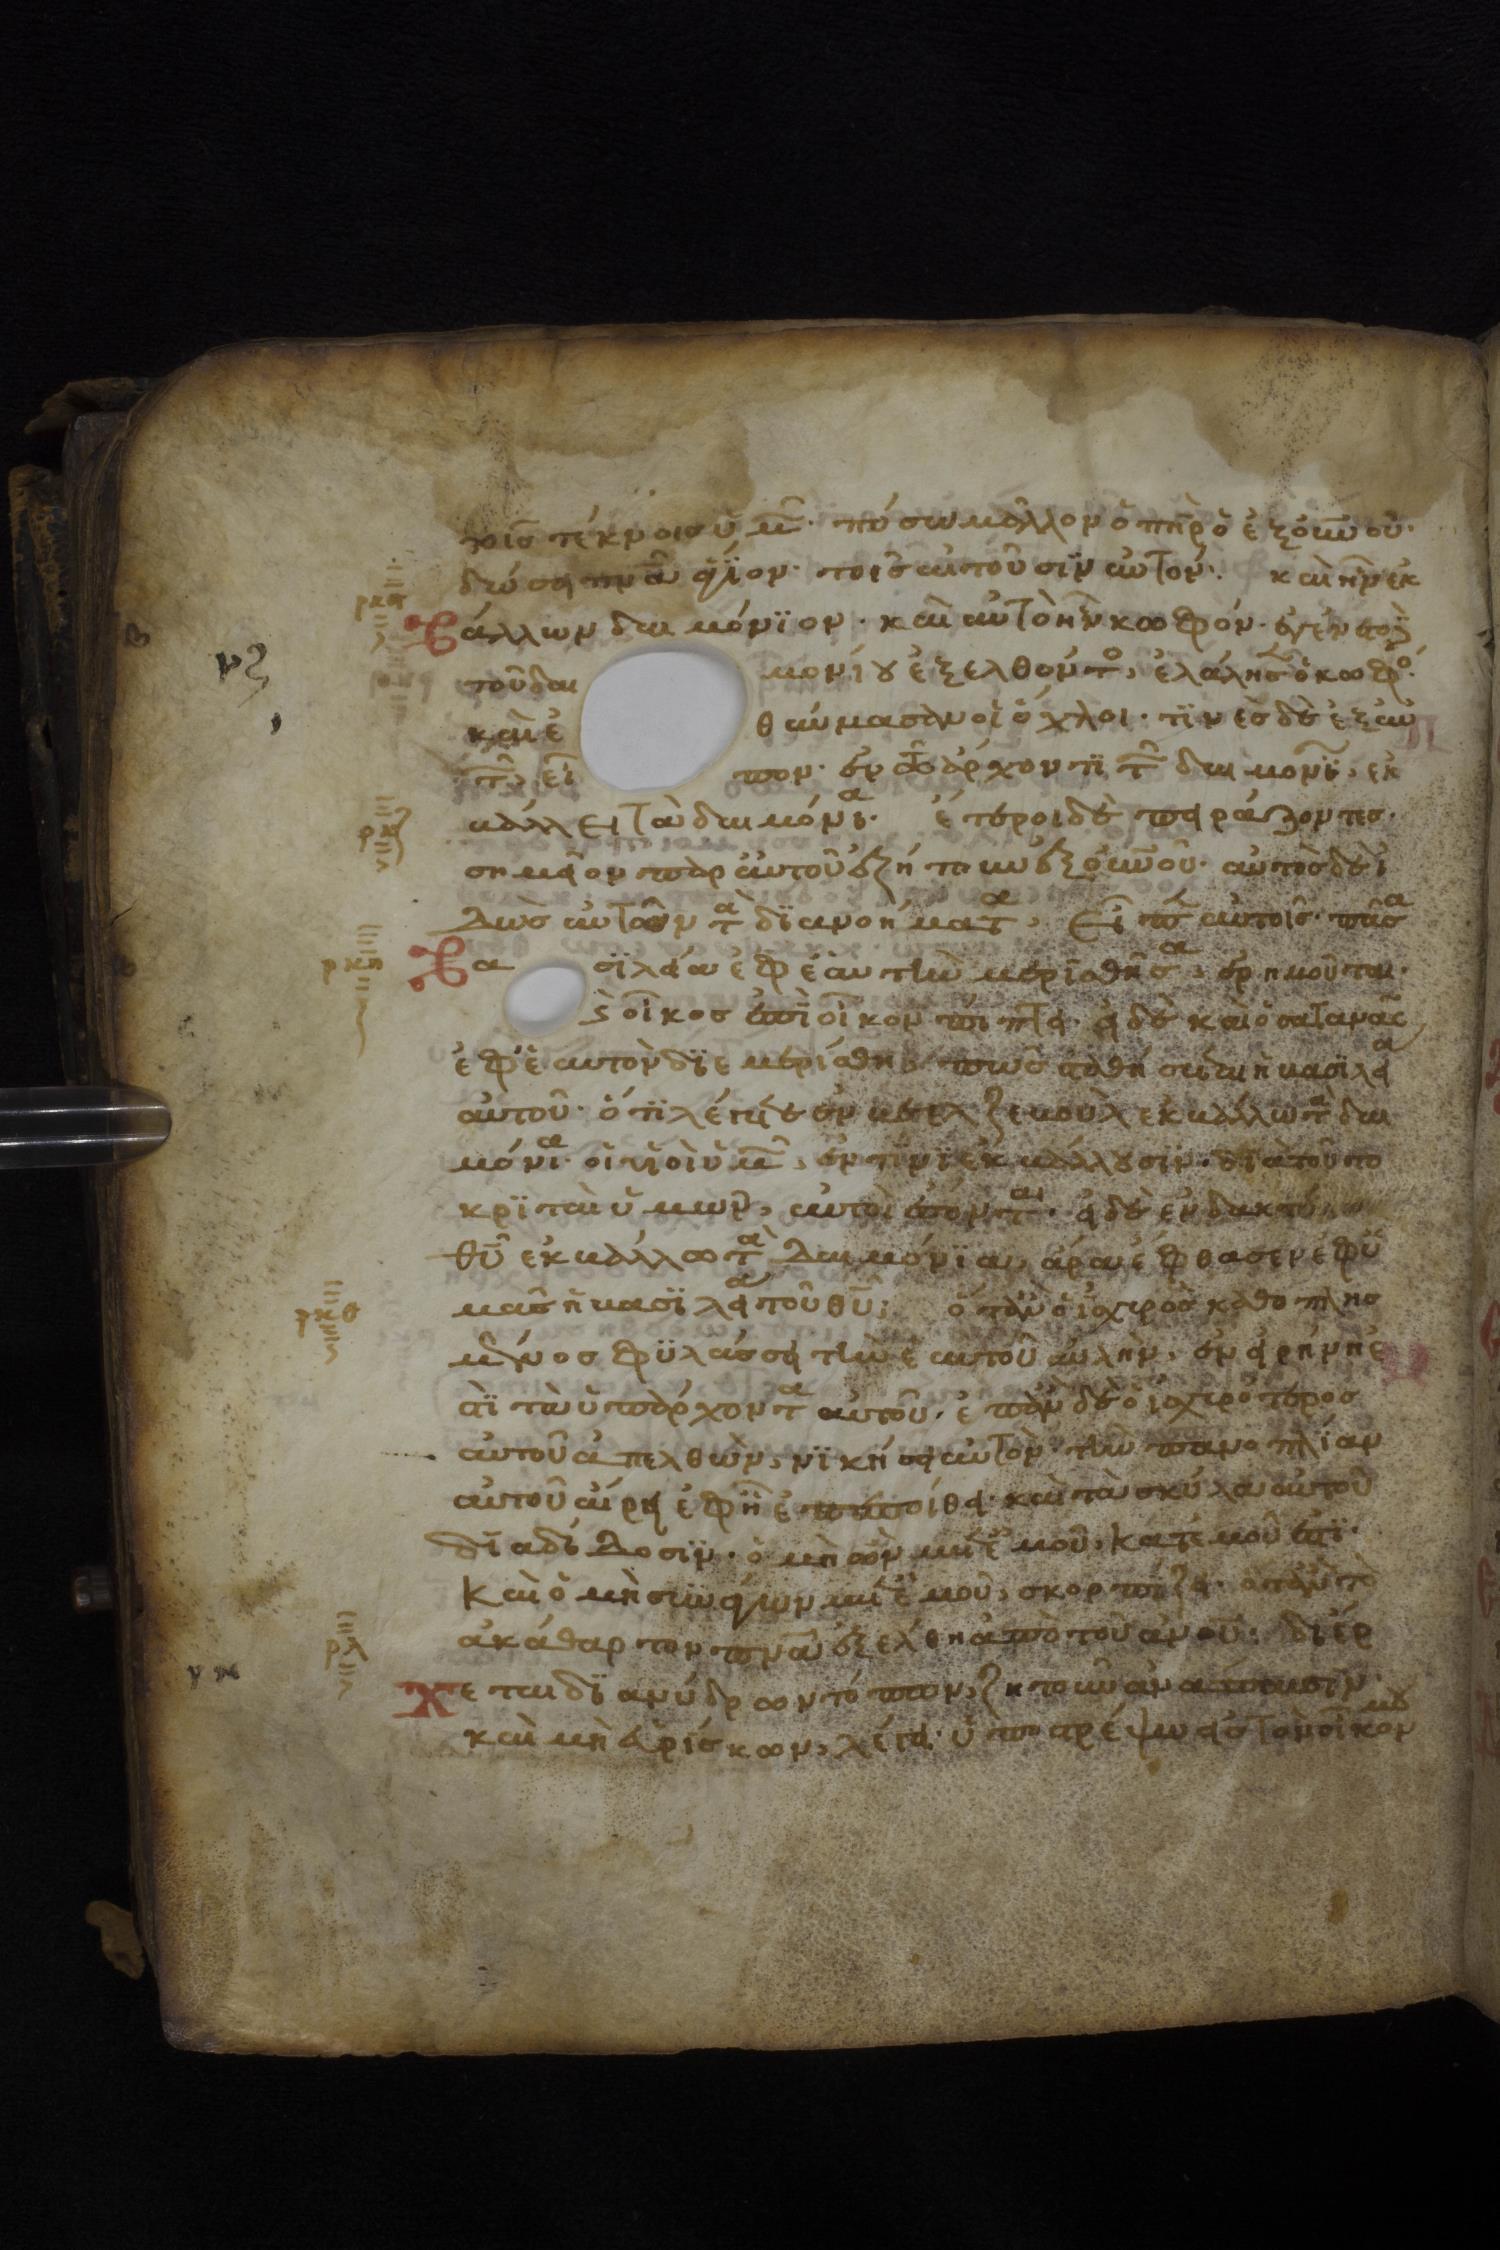 τοῖς τέκνοις ὑμῶν· πόσω μᾶλλον ὁ πηρ ὁ ἐξ οὐνου·
δώσει πνα ἅγϊον· τοῖς αἰτοῦσϊν αὐτόν· καὶ ἦν ἐκ
βάλλων δαιμόνϊον· καὶ αὐτὸ ἦν κωφόν· ἐγένετο δὲ
τοῦ δαι μονίου ἐξελθόντος, ἐλάλησεν ὁ κωφός·
καὶ ἐ θαύμασαν οἱ ὄχλοι· τϊνὲς δὲ ἐξ αὐ
τῶν εἶ πον· ἐν τῶ ἄρχοντϊ τῶν δαιμονίων, ἐκ
βάλλει τὰ δαιμόνια· ἕτεροι δὲ πειράζοντες·
σημεῖον παρ αὐτοῦ ἐζήτουν ἐξ οὐνου· αὐτὸς δὲ εἰ
δὼς αὐτῶν τὰ δϊανοήματα, εἶπεν αὐτοῖς· πᾶσα
βα σϊλεία ἐφ ἑαυτὴν μερϊσθῆσα, ἐρημοῦται·
καὶ οἶκος ἐπὶ οἶκον πίπτει· εἰ δὲ καὶ ὁ σατανᾶς
ἐφ ἑαυτὸν δϊεμερίσθη, πῶς σταθήσεται ἡ βασϊλεία
αὐτοῦ· ὅτϊ λέγετε ἐν βεελζεβοὺλ ἐκβάλλειν τὰ δαι
μόνια· οἱ υἱοὶ ὑμῶν, ἐν τίνϊ ἐκβάλλουσϊν· δϊατοῦτο
κρϊταὶ ὑμῶν, αὐτοὶ ἔσονται· εἰ δὲ ἐν δακτύ
θυ ἐκβάλλω τὰ δαιμόνϊα, ἄρα ἔφθασεν ἐφ ὑ
μᾶς ἡ βασϊλεία τοῦ θυ· ὅταν ὁ ἰσχυρὸς καθοπλησ
μένος φϋλάσσει τὴν ἑαυτοῦ αὐλὴν, ἐν εἰρήνη ἐ
στϊ τὰ ὑπάρχοντα αὐτοῦ· ἐπὰν δὲ ὁ ἰσχυρότερος
αὐτοῦ ἀπελθὼν, νϊκήσει αὐτὸν· τὴν πανοπλίαν
αὐτοῦ αἴρει ἐφ ἧ ἐπεποίθει· καὶ τὰ σκύλα αὐτοῦ
δϊαδίδοσϊν· ὁ μὴ ὢν μετ ἐμοῦ, κατ ἐμοῦ ἐστϊ·
καὶ ὁ μὴ συνάγων μετ ἐμοῦ, σκορπίζει· ὅταν τὸ
ἀκάθαρτον πνα ἐξέλθη ἀπὸ τοῦ ανου· δϊέρ
χεται δϊ ἀνύδρων τόπων, ζητοῦν ἀνάπαυσϊν·
καὶ μὴ εὑρίσκων, λέγει· ὑποστρέψω εἰς τὸν οἶκον μου
ρκς
νζ
ρκζ
ρκη
ρκθ
ρλ
νη